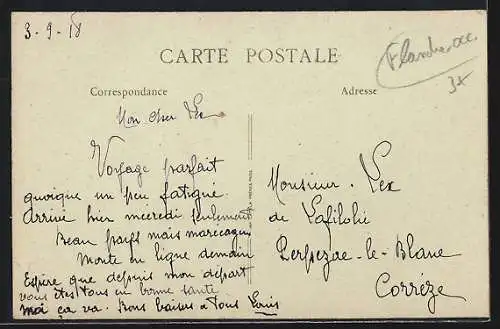 3-9-18
CARTE POSTALE
Correspondance
Adresse
Mon cher Lex
Voyage parfait
quoique un peu fatigué.
Arrivé hier mecredi seulement
Beau pays mais marecageux
Monte en ligne demain
Espère que depuis mon départ
vous êtes tous en bonne santé
moi ça va. Bons baisers a tous Louis
Monsieur. Lex
de Lafilolie
Perpezac-le-Blanc
Corrèze